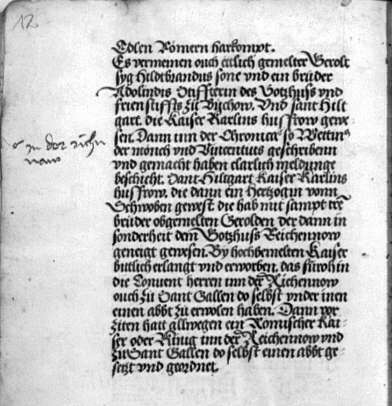 12
Edlen Römern harkompt.
Es vermeinen ouch ettlich gemelter Gerolt
syg Hildtbrandus sone vnd ein brüder
Adolindis Stiffterin des Gotzhuss vnd
freienstiffts zü Büchow. Vnd sant Hilt
gart. die Kaiser Karlins hussfrow gewe
sen. Dann inn der Chronica so
der mönch vnd Vincentius geschribenn
vnd gemacht haben clarlich meldunge
beschicht. Sant Hiltgart Kaiser Karlins
hussfrow. die dann ein Hertzogin vonn
Schwoben gewest. die hab mit sampt irē
brüder obgemelten Gerolden der dann in
sonderheit dem Gotzhuss Reichennow
geneigt gewesen. By hochbemelten Kaiser
bittlich erlangt vnd erworben. das fürohin
die Convent herren inn der Richennow
ouch zü Sant Gallen do selbst vnder inen
einen abbt zü erwölen haben. Dann vor
ziten hatt allwegen ein Römischer Kai-
ser oder Künig inn der Reichennow vnd
zü Sant Gallen do selbst einen abbt ge-
setzt vnd geordnet.
in der richen
naw